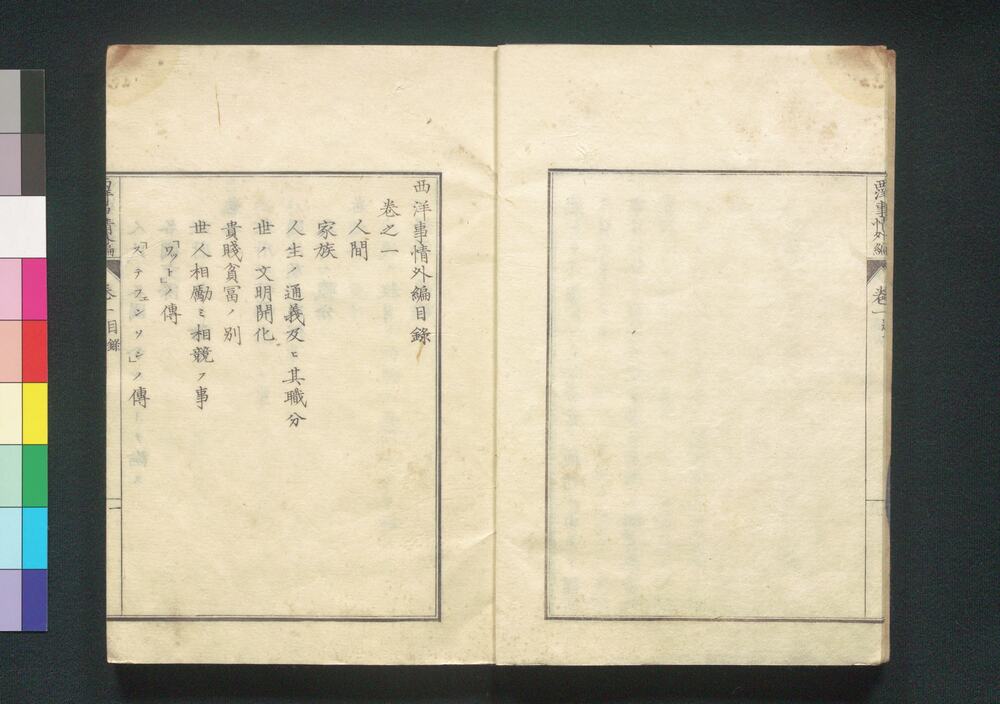 西洋事情外編
卷一
西洋事情外編目錄
卷之一
人間
家族
人生ノ通義及ヒ其職分
世ノ文明開化
貴賤貧冨ノ別
世人相勵ミ相競フ事
「ワット」ノ傳
「ステフェンソン」ノ傳
卷一目錄
一